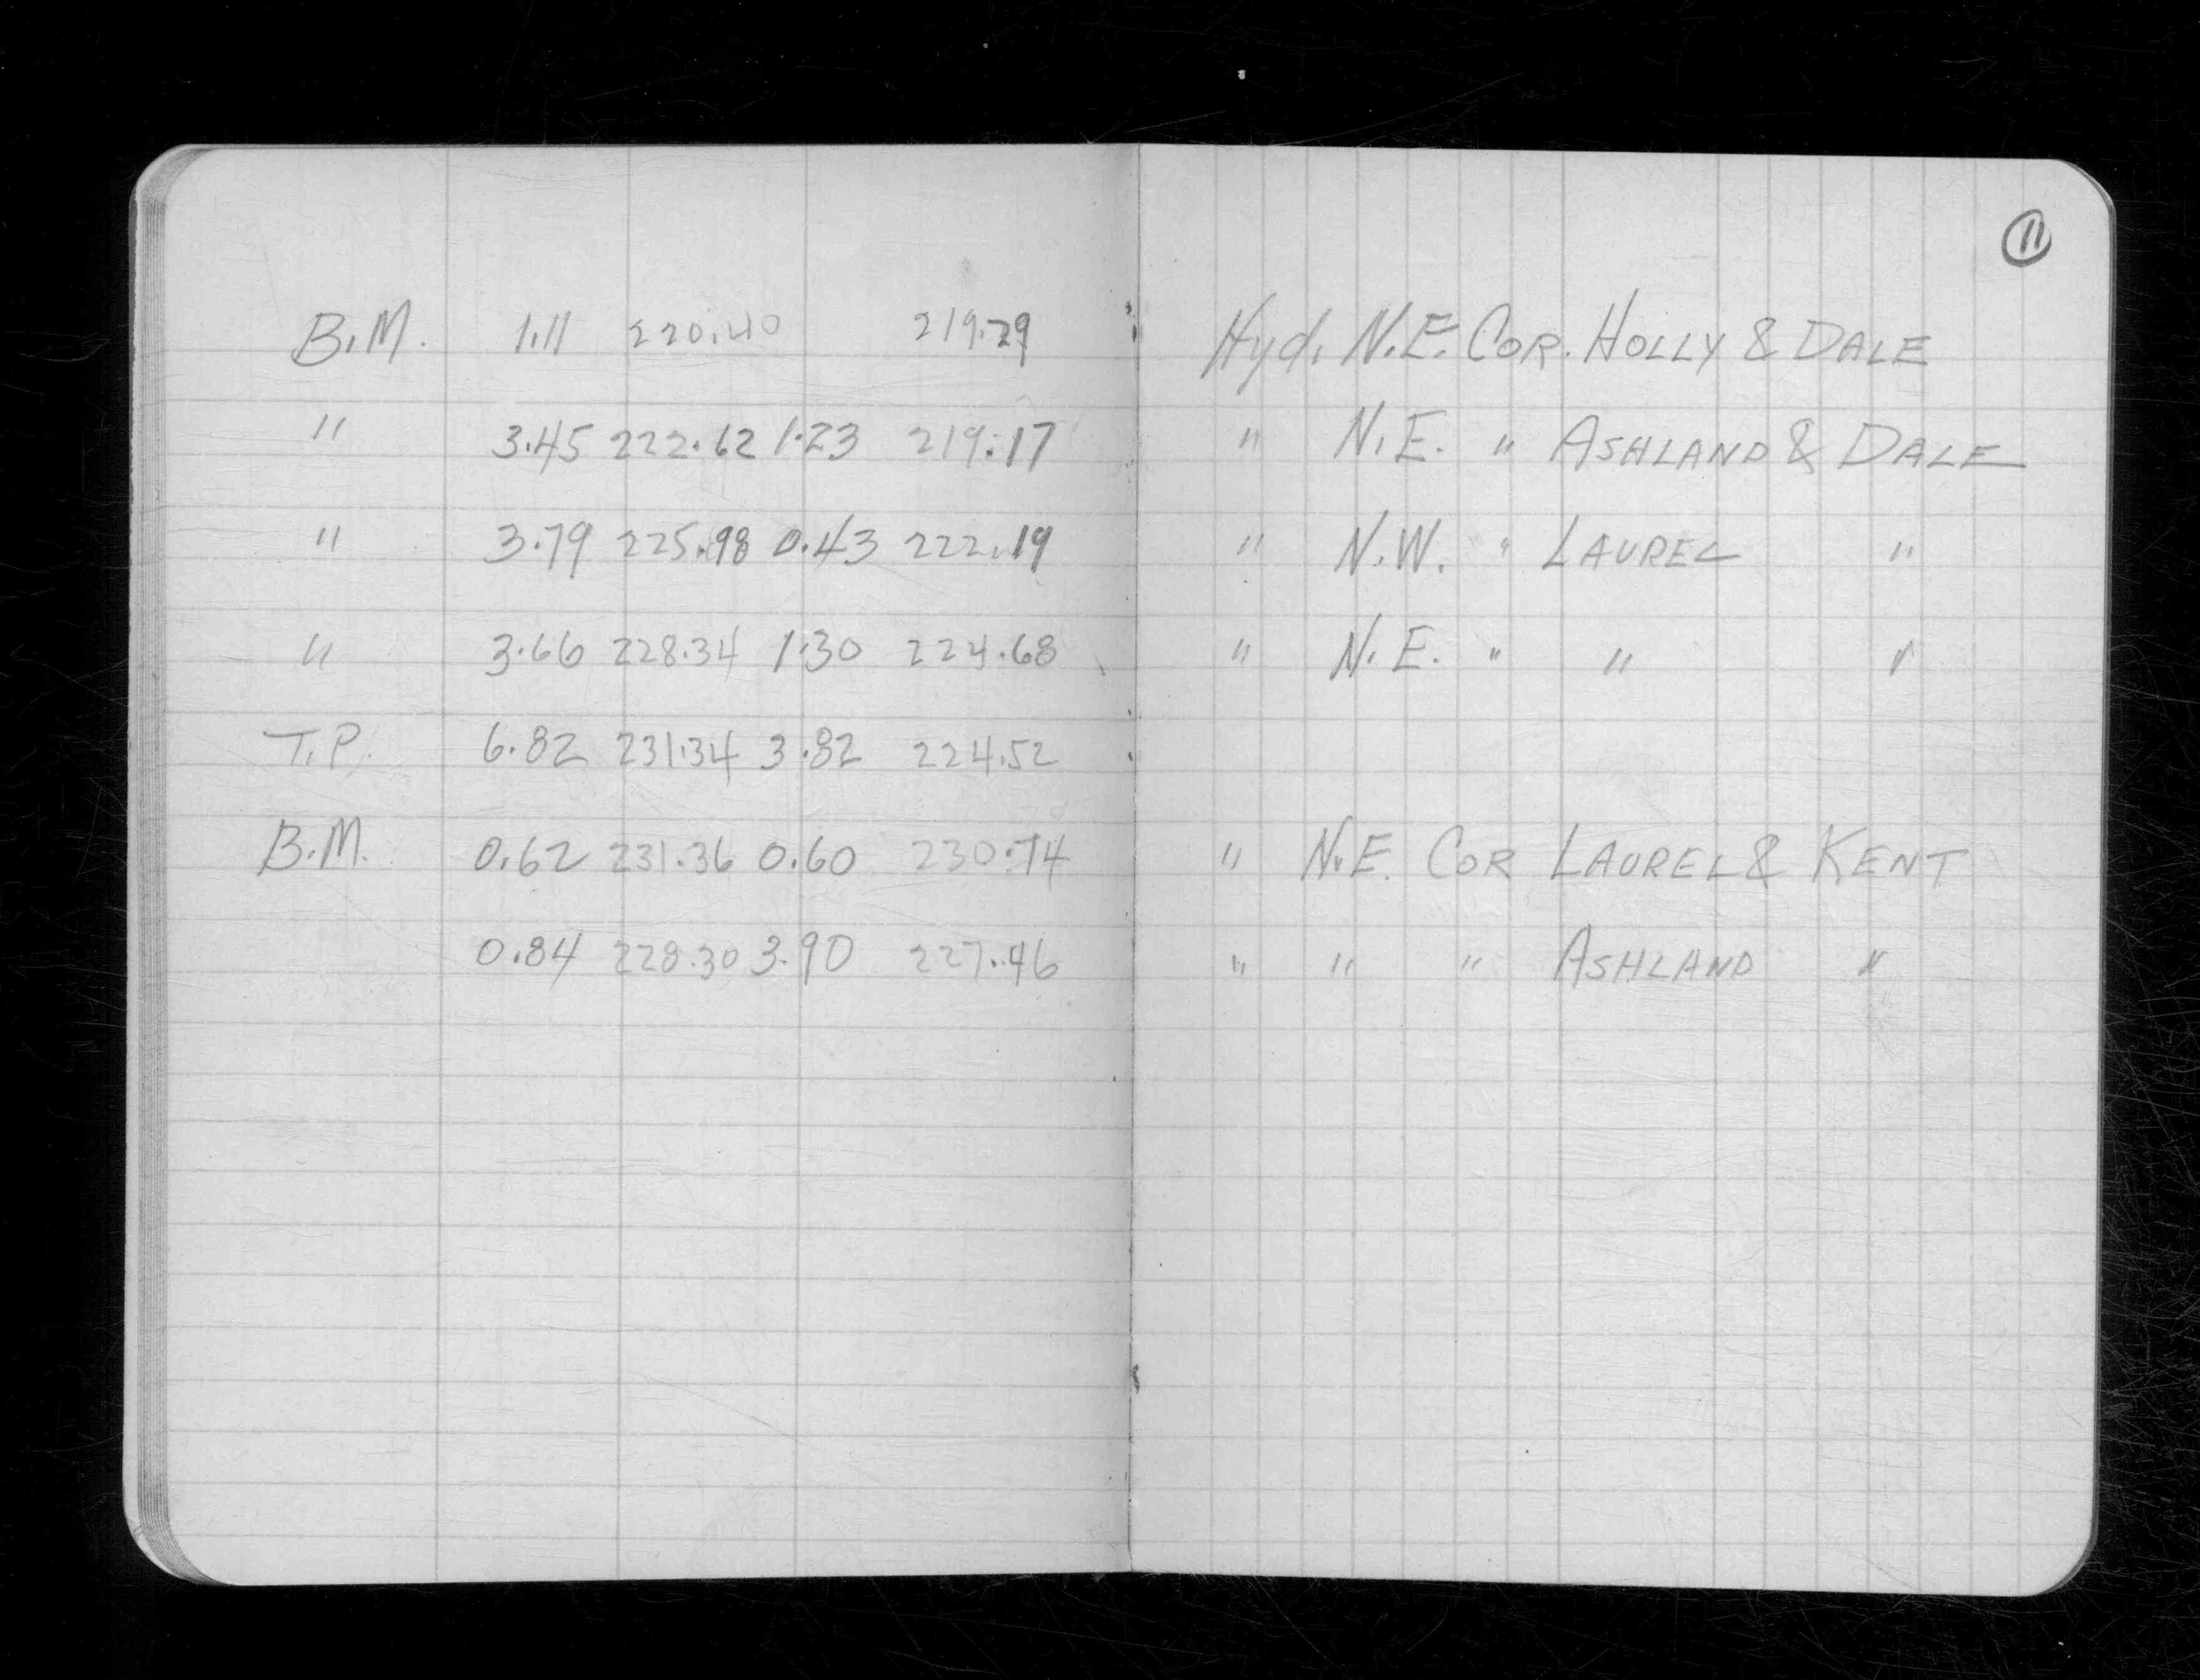 11
B.M. 1.11 220.40 219.29 Hyd. N.E. COR. HOLLY & DALE
" 3.45 222.62 1.23 219.17 " N.E. " ASHLAND & DALE
" 3.79 225.98 0.43 222.19 " N.W. " LAUREL "
" 3.66 228.34 1.30 224.68 " N.E. " " "
T.P. 6.82 231.34 3.82 224.52
B.M. 0.62 231.36 0.60 230.74 " N.E. COR LAUREL & KENT
0.84 228.30 3.90 227.46 " " " ASHLAND "